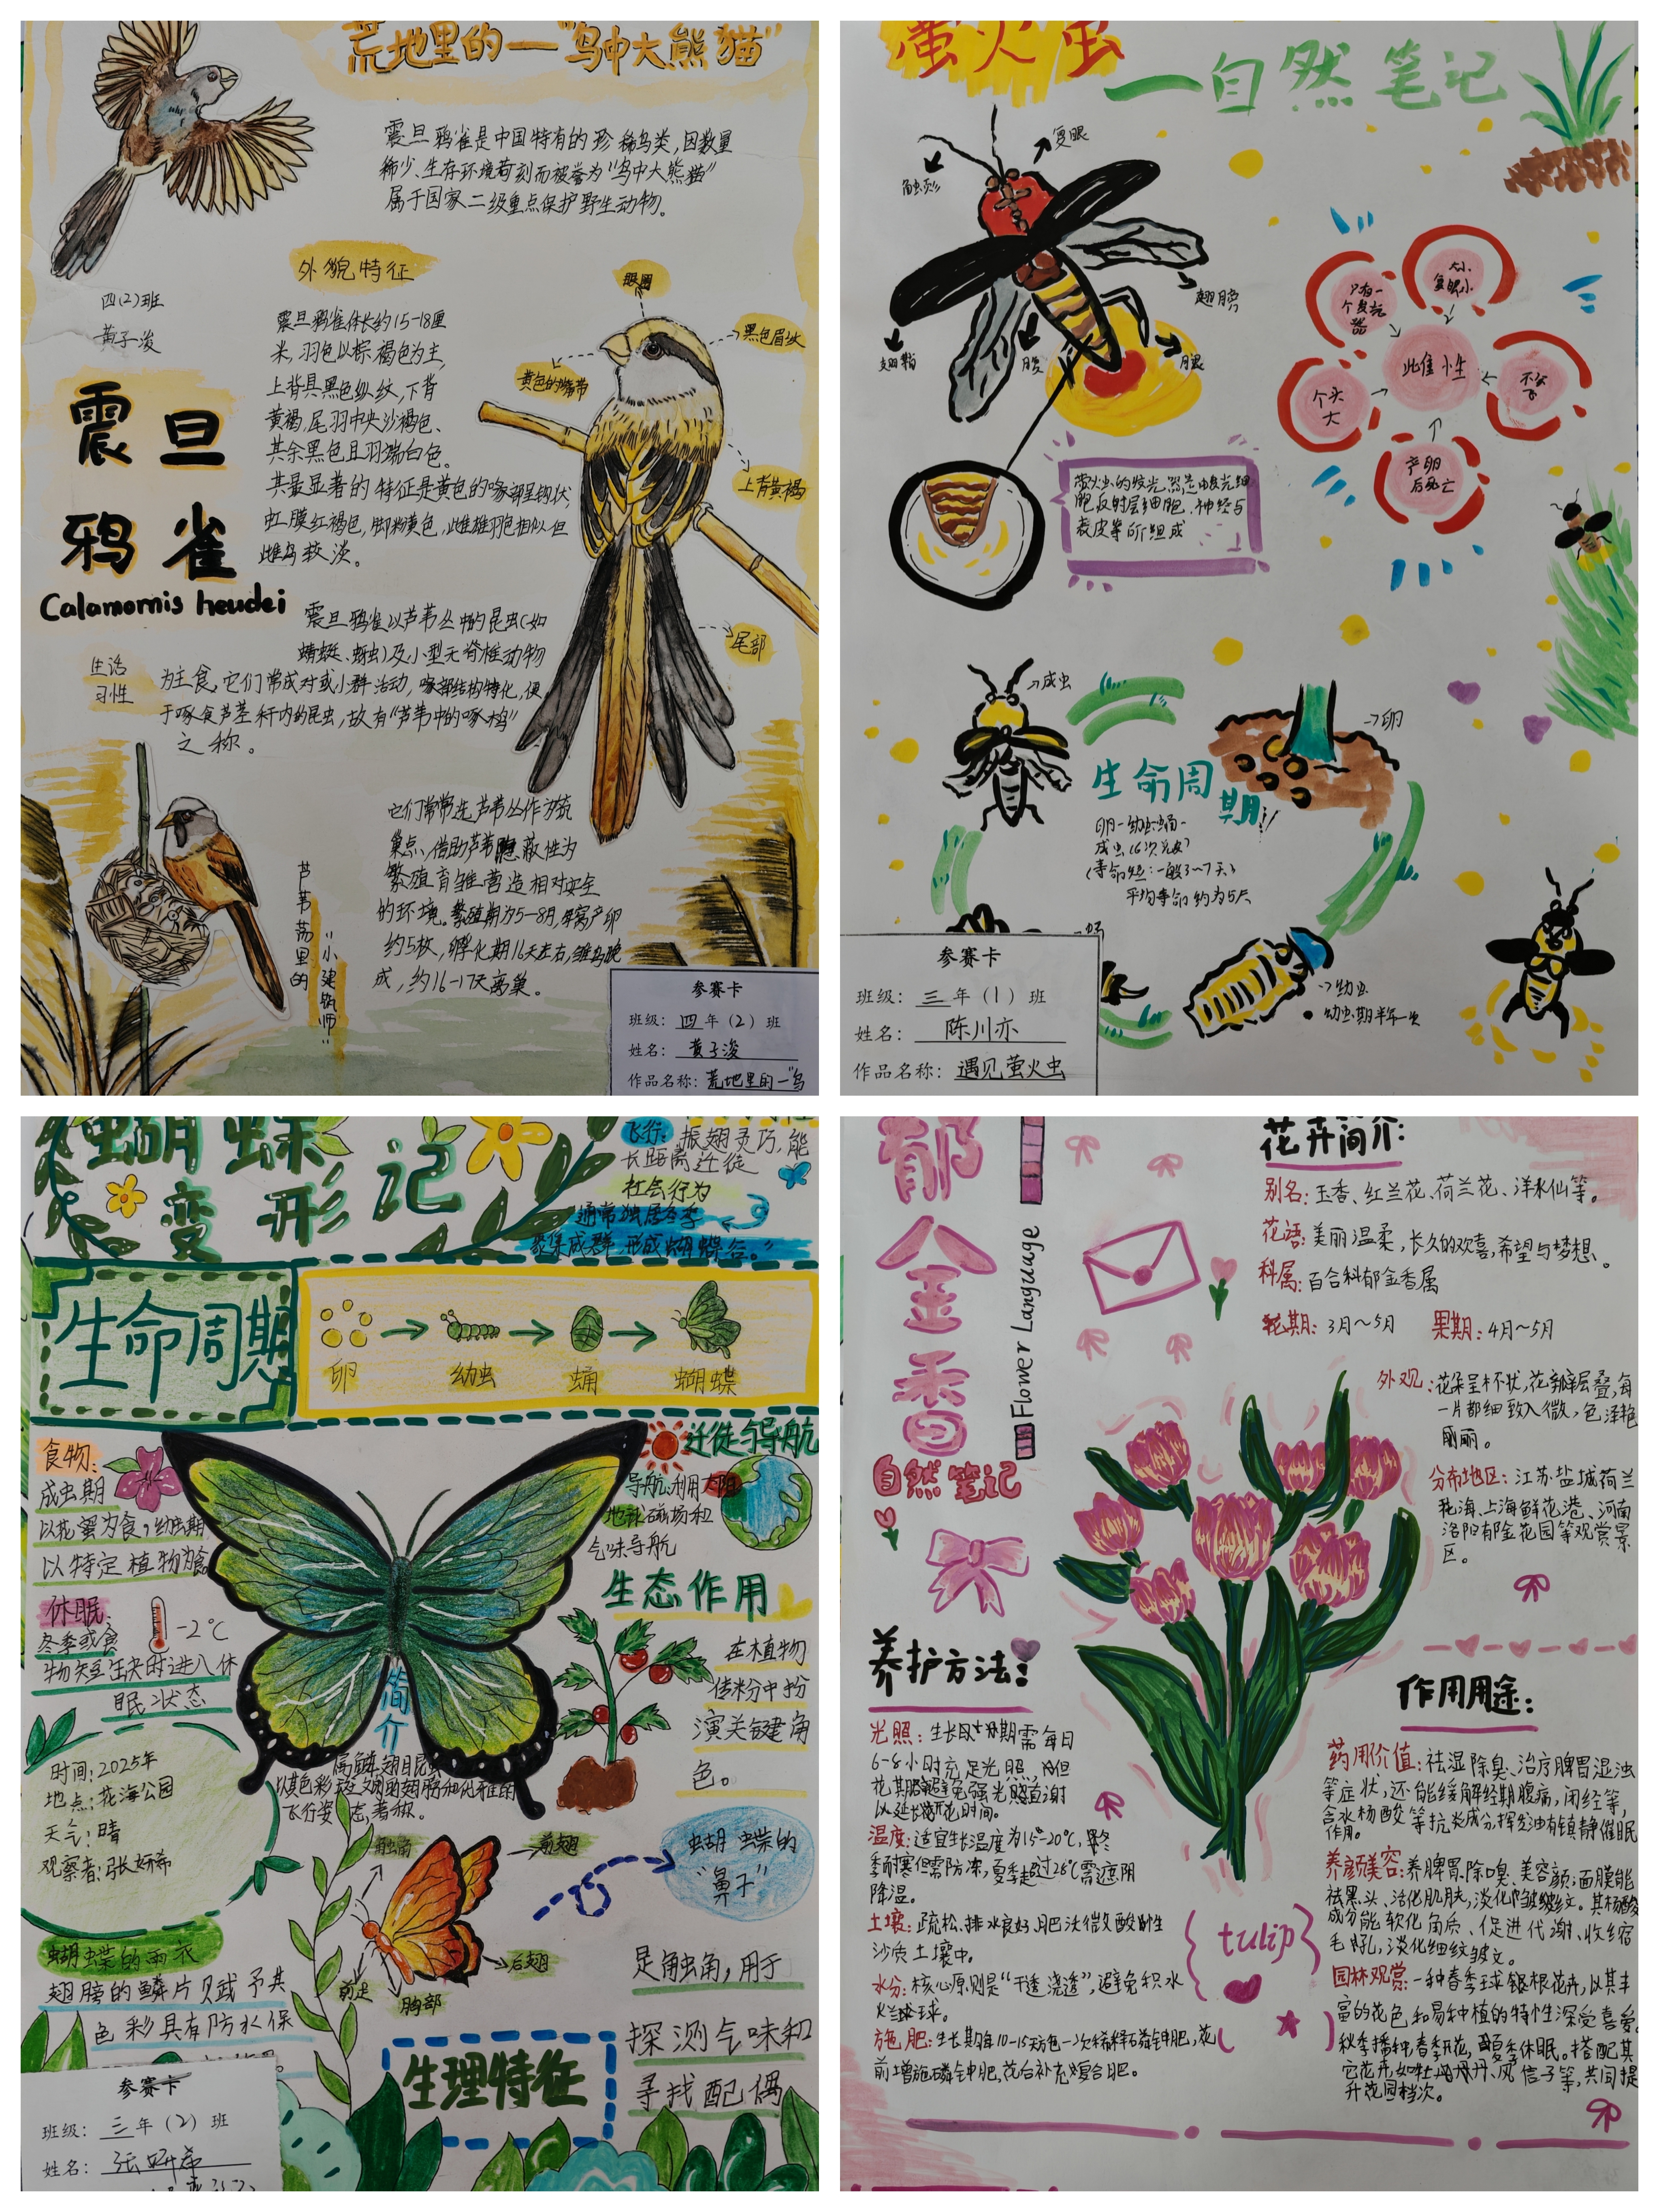 荒地里的一"鸟中大熊猫"
震旦鸦雀是中国特有的珍稀鸟类,因数量
稀少、生存环境苛刻而被誉为"鸟中大熊猫"
属于国家二级重点保护野生动物。
四(2)班
黄子浚
外貌特征
震旦鸦雀体长约15-18厘
米,羽色以棕褐色为主,
上背具黑色纵纹,下背
黄褐,尾羽中央沙褐色、
其余黑色且羽端白色。
其最显著的特征是黄色的喙部呈钩状,
虹膜红褐色,脚粉黄色,雌雄羽色相似但
雌鸟较淡。
眼圈
黑色眉纹
黄色的嘴
上背黄褐
尾部
震旦
鸦雀
Calamornis heudei
生活
习性
震旦鸦雀以芦苇丛中的昆虫(如
蜻蜓、蚜虫)及小型无脊椎动物
为主食,它们常成对或小群活动,喙部结构特化,便
于啄食芦茎秆内的昆虫,故有"芦苇中的啄木鸟"
之称。
它们常常选芦苇丛作为筑
巢点、借助芦苇隐蔽性为
繁殖育雏营造相对安全
的环境。繁殖期为5-8月,每窝产卵
约5枚,孵化期16天左右,雏鸟晚
成,约16-17天离巢。
芦苇荡里的
"小建筑师"
参赛卡
班级:四年(2)班
姓名:黄子浚
作品名称:荒地里的一"鸟
萤火虫
一自然笔记
复眼
触须
翅膀
翅鞘
腹
腿
萤火虫的发光器是由发光细
胞反射层细胞、神经与
表皮等所组成
只有一
个发光
器
大小
复眼小
个头
大
此雌性
不会
飞
产卵
后死亡
成虫
卵
生命周期!
卵-幼虫-蛹-
成虫(6次蜕皮)
(寿命短:一般3~7天)
平均寿命约为5天
幼虫
幼虫期半年一次
参赛卡
班级:三年(1)班
姓名:陈川亦
作品名称:遇见萤火虫
蝴蝶
变形记
飞行:振翅灵巧,能
长距离迁徙
社会行为
通常独居冬季
聚集成群,形成蝴蝶谷。"
生命周期
卵
幼虫
蛹
蝴蝶
食物:
成虫期
以花蜜为食,幼虫期
以特定植物为食
休眠:
冬季或食
物短缺时进入休
眠状态
-2℃
迁徙与导航
导航:利用太阳
地球磁场和
气味导航
生态作用
在植物
传粉中扮
演关键角
色。
简介
属鳞翅目昆虫
以其色彩斑斓的翅膀和优雅的
飞行姿态,著称。
时间:2025年
地点:花海公园
天气:晴
观察者:张妍希
触角
前翅
后翅
前足
胸部
蝴蝶的
"鼻子"
是触角,用于
探测气味和
寻找配偶
蝴蝶的雨衣
翅膀的鳞片赋予其
色彩具有防水保
生理特征
参赛卡
班级:三年(2)班
姓名:张妍希
郁金香
Flower Language
自然笔记
花卉简介:
别名:玉香、红兰花、荷兰花、洋水仙等。
花语:美丽温柔,长久的欢喜,希望与梦想。
科属:百合科郁金香属
花期:3月~5月 果期:4月~5月
外观:花朵呈杯状,花瓣层叠,每
一片都细致入微,色泽艳
丽。
分布地区:江苏盐城荷兰
花海、上海鲜花港、河南
洛阳郁金花园等观赏景
区。
养护方法:
光照:生长期需每日
6-8小时充足光照,但
花期需避免强光照直射
以延长开花时间。
温度:适宜生长温度为15-20℃,冬
季耐寒但需防冻,夏季超过28℃需遮阴
降温。
土壤:疏松、排水良好、肥沃微酸性
沙质土壤中。
水分:核心原则是"干透浇透",避免积水
烂球。
施肥:生长期每10-15天施一次稀释磷钾肥,花
前增施磷钾肥,花后补充复合肥。
作用用途:
药用价值:祛湿除臭、治疗脾胃湿浊
等症状,还能缓解经期腹痛,闭经等,
含水杨酸等抗炎成分,挥发油有镇静催眠
作用。
养颜美容:养脾胃、除嗅、美容颜;面膜能
祛黑头、活化肌肤,淡化皱纹。其杨酸
成分能软化角质、促进代谢、收缩
毛孔,淡化细纹皱纹。
园林观赏:一种春季球根花卉,以其丰
富的花色和易种植的特性深受喜爱。
秋季播种,春季开花,夏季休眠。搭配其
它花卉如牡丹、风信子等,共同提
升花园档次。
tulip